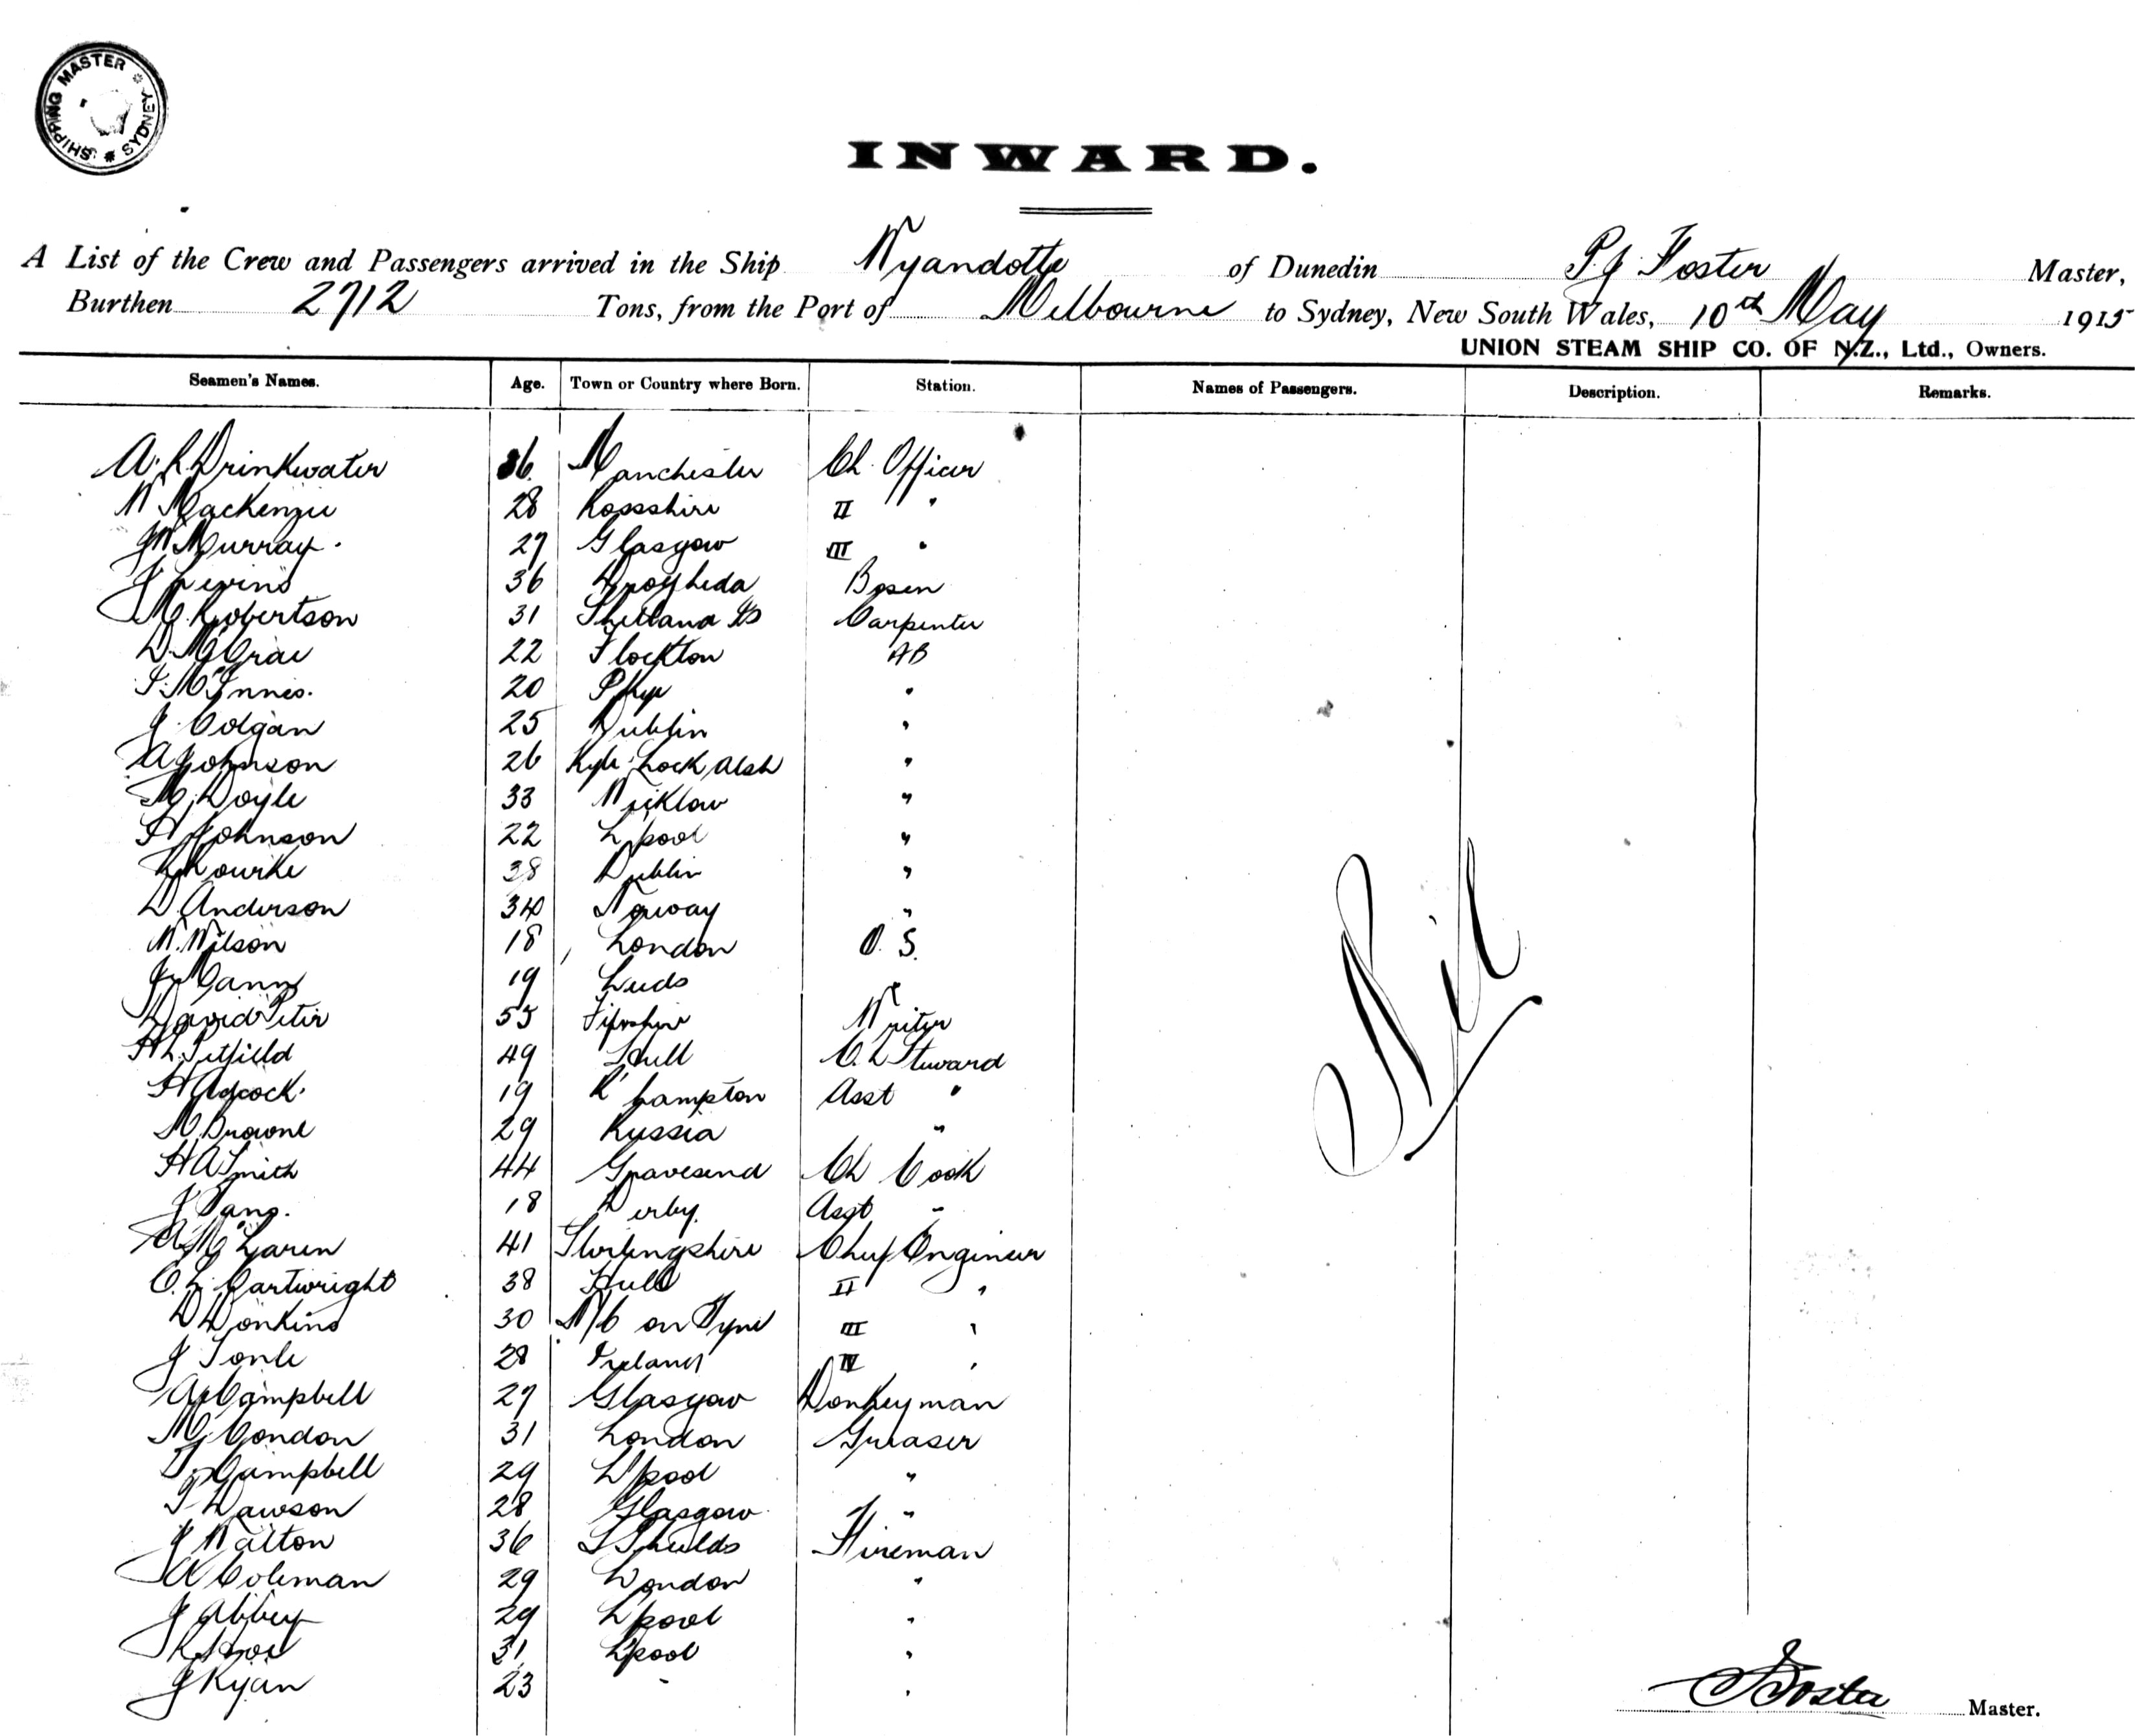 SHIPPING MASTER * SYDNEY *
INWARD.
A List of the Crew and Passengers arrived in the Ship Wyandotte of Dunedin P.J. Foster Master,
Burthen 2712 Tons, from the Port of Melbourne to Sydney, New South Wales, 10th May 1915
UNION STEAM SHIP CO. OF N.Z., Ltd., Owners.
Seamen's Names. Age. Town or Country where Born. Station. Names of Passengers. Description. Remarks.
A. R Drinkwater 36. Manchester Ch. Officer
W Mackenzie 28 Rossshire II "
J W Murray. 27 Glasgow III "
J Levins 36 Drogheda Bosen
M. Robertson 31 Shetland Is Carpenter
D. McCrae 22 Flockton AB
McInnes. 20 Skye "
J Colgan 25 Dublin "
A Johnson 26 Kyle Lock Alsh "
M. Doyle 33 Wicklow "
H Johnson 22 L'pool "
Rourke 38 Dublin "
D Anderson 34 Norway "
W. Wilson 18 London O. S.
Gann 19 Leeds
David Peter 55 Fifeshire Writer
H L. Petfield 49 Hull Ch Steward
H Adcock 19 hampton Asst "
M. Browne 29 Russia "
H A Smith 44 Gravesend Ch Cook
J 18 Derby. Asst "
A. McLaren 41 Stirlingshire Chief Engineer
C. L. Cartwright 38 Hull II "
D Donkins 30 N/C on Tyne III "
J 28 Ireland IV "
A Campbell 27 Glasgow Donkeyman
M Condon 31 London Greaser
Campbell 29 L'pool "
Dawson 28 Glasgow "
J Walton 36 S Shields Fireman
A Coleman 29 London "
J Abbey 29 L'pool "
R 31 L'pool "
J Ryan 23 - "
Nil
Foster Master.